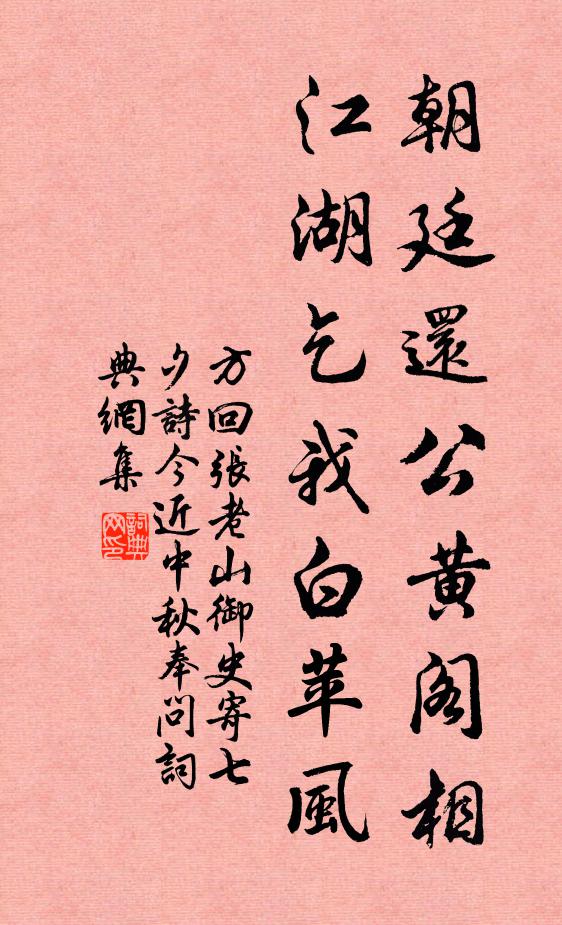 朝廷還公黄阁相
江湖乞我白苹風
方回張老山御史寄七
夕詩今近中秋奉问詞
典網集
詞典
网印